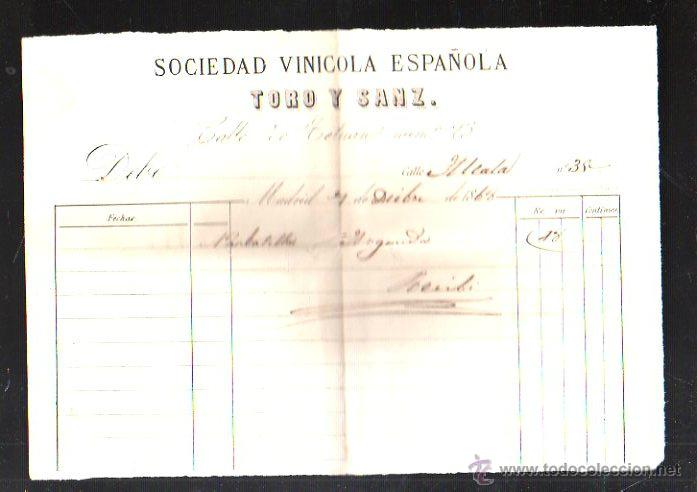 SOCIEDAD VINICOLA ESPAÑOLA
TORO Y SANZ.
Calle de Tetuan num. 23
Debe
Calle Alcala nº 38
Madrid 21 de Dcbre de 186
Fechas Rs. vn Centimos
Arganda 48
Recibi
www.todocoleccion.net